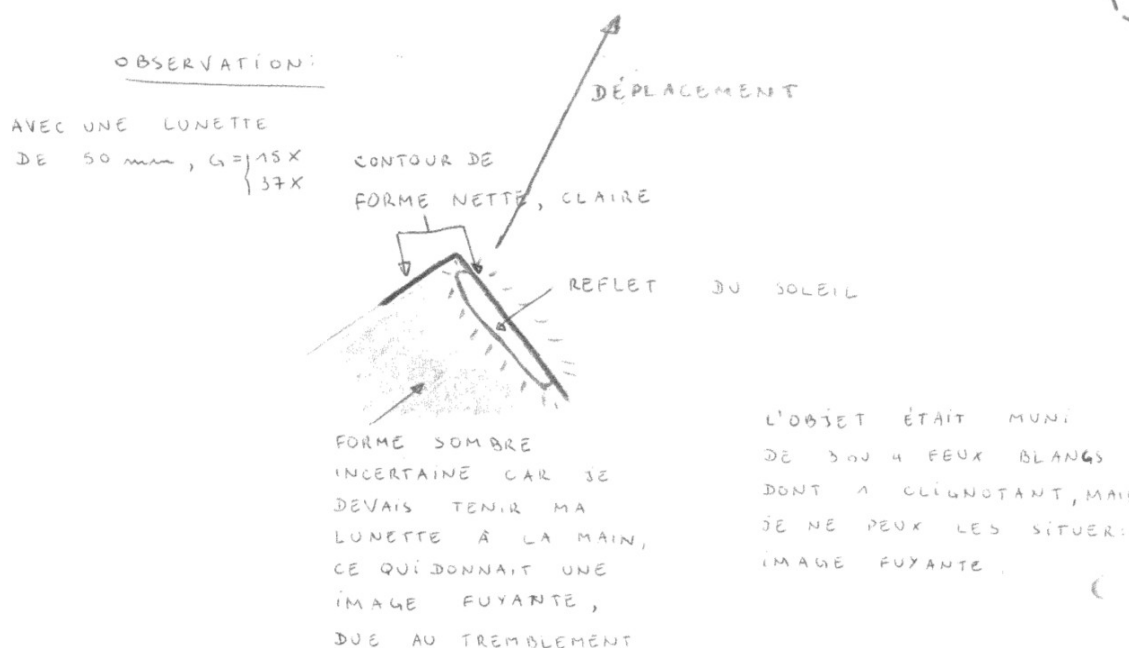 OBSERVATION:
DÉPLACEMENT
AVEC UNE LUNETTE
DE 50 mm, G = 15X
37X
CONTOUR DE
FORME NETTE, CLAIRE
REFLET DU SOLEIL
FORME SOMBRE
INCERTAINE CAR JE
DEVAIS TENIR MA
LUNETTE À LA MAIN,
CE QUI DONNAIT UNE
IMAGE FUYANTE,
DUE AU TREMBLEMENT
L'OBJET ÉTAIT MUNI
DE 3 OU 4 FEUX BLANGS
DONT 1 CLIGNOTANT, MAI
JE NE PEUX LES SITUER:
IMAGE FUYANTE.